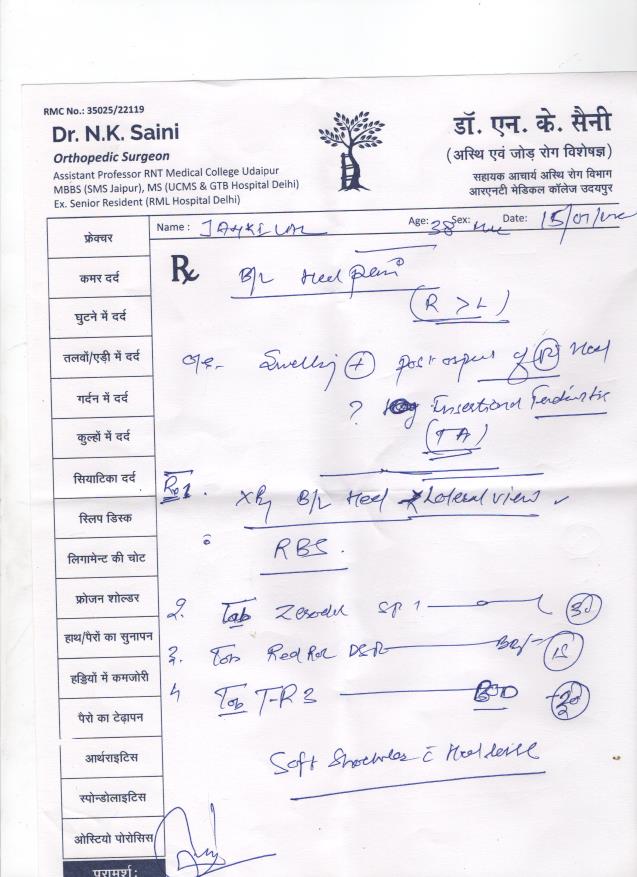 RMC No.: 35025/22119
Dr. N.K. Saini
Orthopedic Surgeon
Assistant Professor RNT Medical College Udaipur
MBBS (SMS Jaipur), MS (UCMS & GTB Hospital Delhi)
Ex. Senior Resident (RML Hospital Delhi)
डॉ. एन. के. सैनी
(अस्थि एवं जोड़ रोग विशेषज्ञ)
सहायक आचार्य अस्थि रोग विभाग
आरएनटी मेडिकल कॉलेज उदयपुर
Name : Age: 38 Sex: Date: 15/07/
फ्रेक्चर
कमर दर्द
घुटने में दर्द
तलवों/एड़ी में दर्द
गर्दन में दर्द
कुल्हों में दर्द
सियाटिका दर्द
स्लिप डिस्क
लिगामेन्ट की चोट
फ्रोजन शोल्डर
हाथ/पैरों का सुनापन
हड्डियों में कमजोरी
पैरो का टेढ़ापन
आर्थराइटिस
स्पोन्डोलाइटिस
ओस्टियो पोरोसिस
परामर्श:
Rx
B/L Heel Pain
(R > L)
Swelling + of Rt Heel
? Insertional Tendinitis
(TA)
1. XRay B/L Heel Lateral view
RBS.
2. Tab SP 1
3. Tab DSR 15
4 Tab T-R 3
Soft